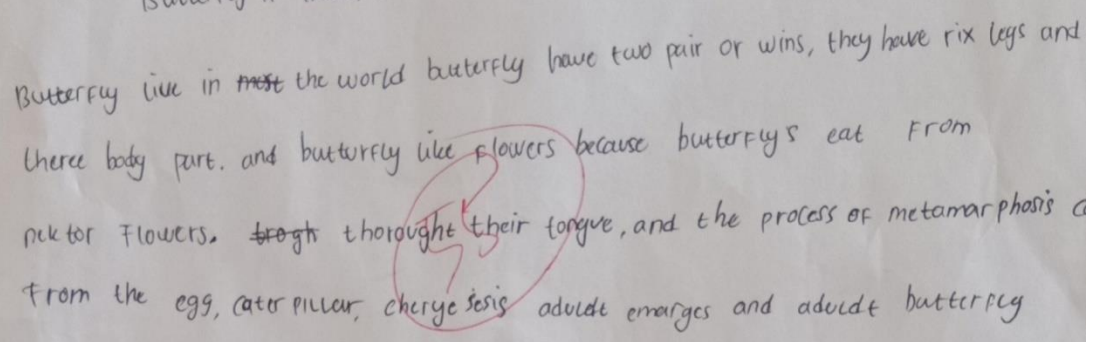 Butterfly live in most the world butterfly have two pair or wins, they have rix legs and
theree body part. and butturfly like flowers because butterflys eat From
nektor Flowers. trogh thorought their tongue, and the process of metamarphosis
From the egg, cater pillar, cherye sesis aduldt emarges and aduldt butterfly